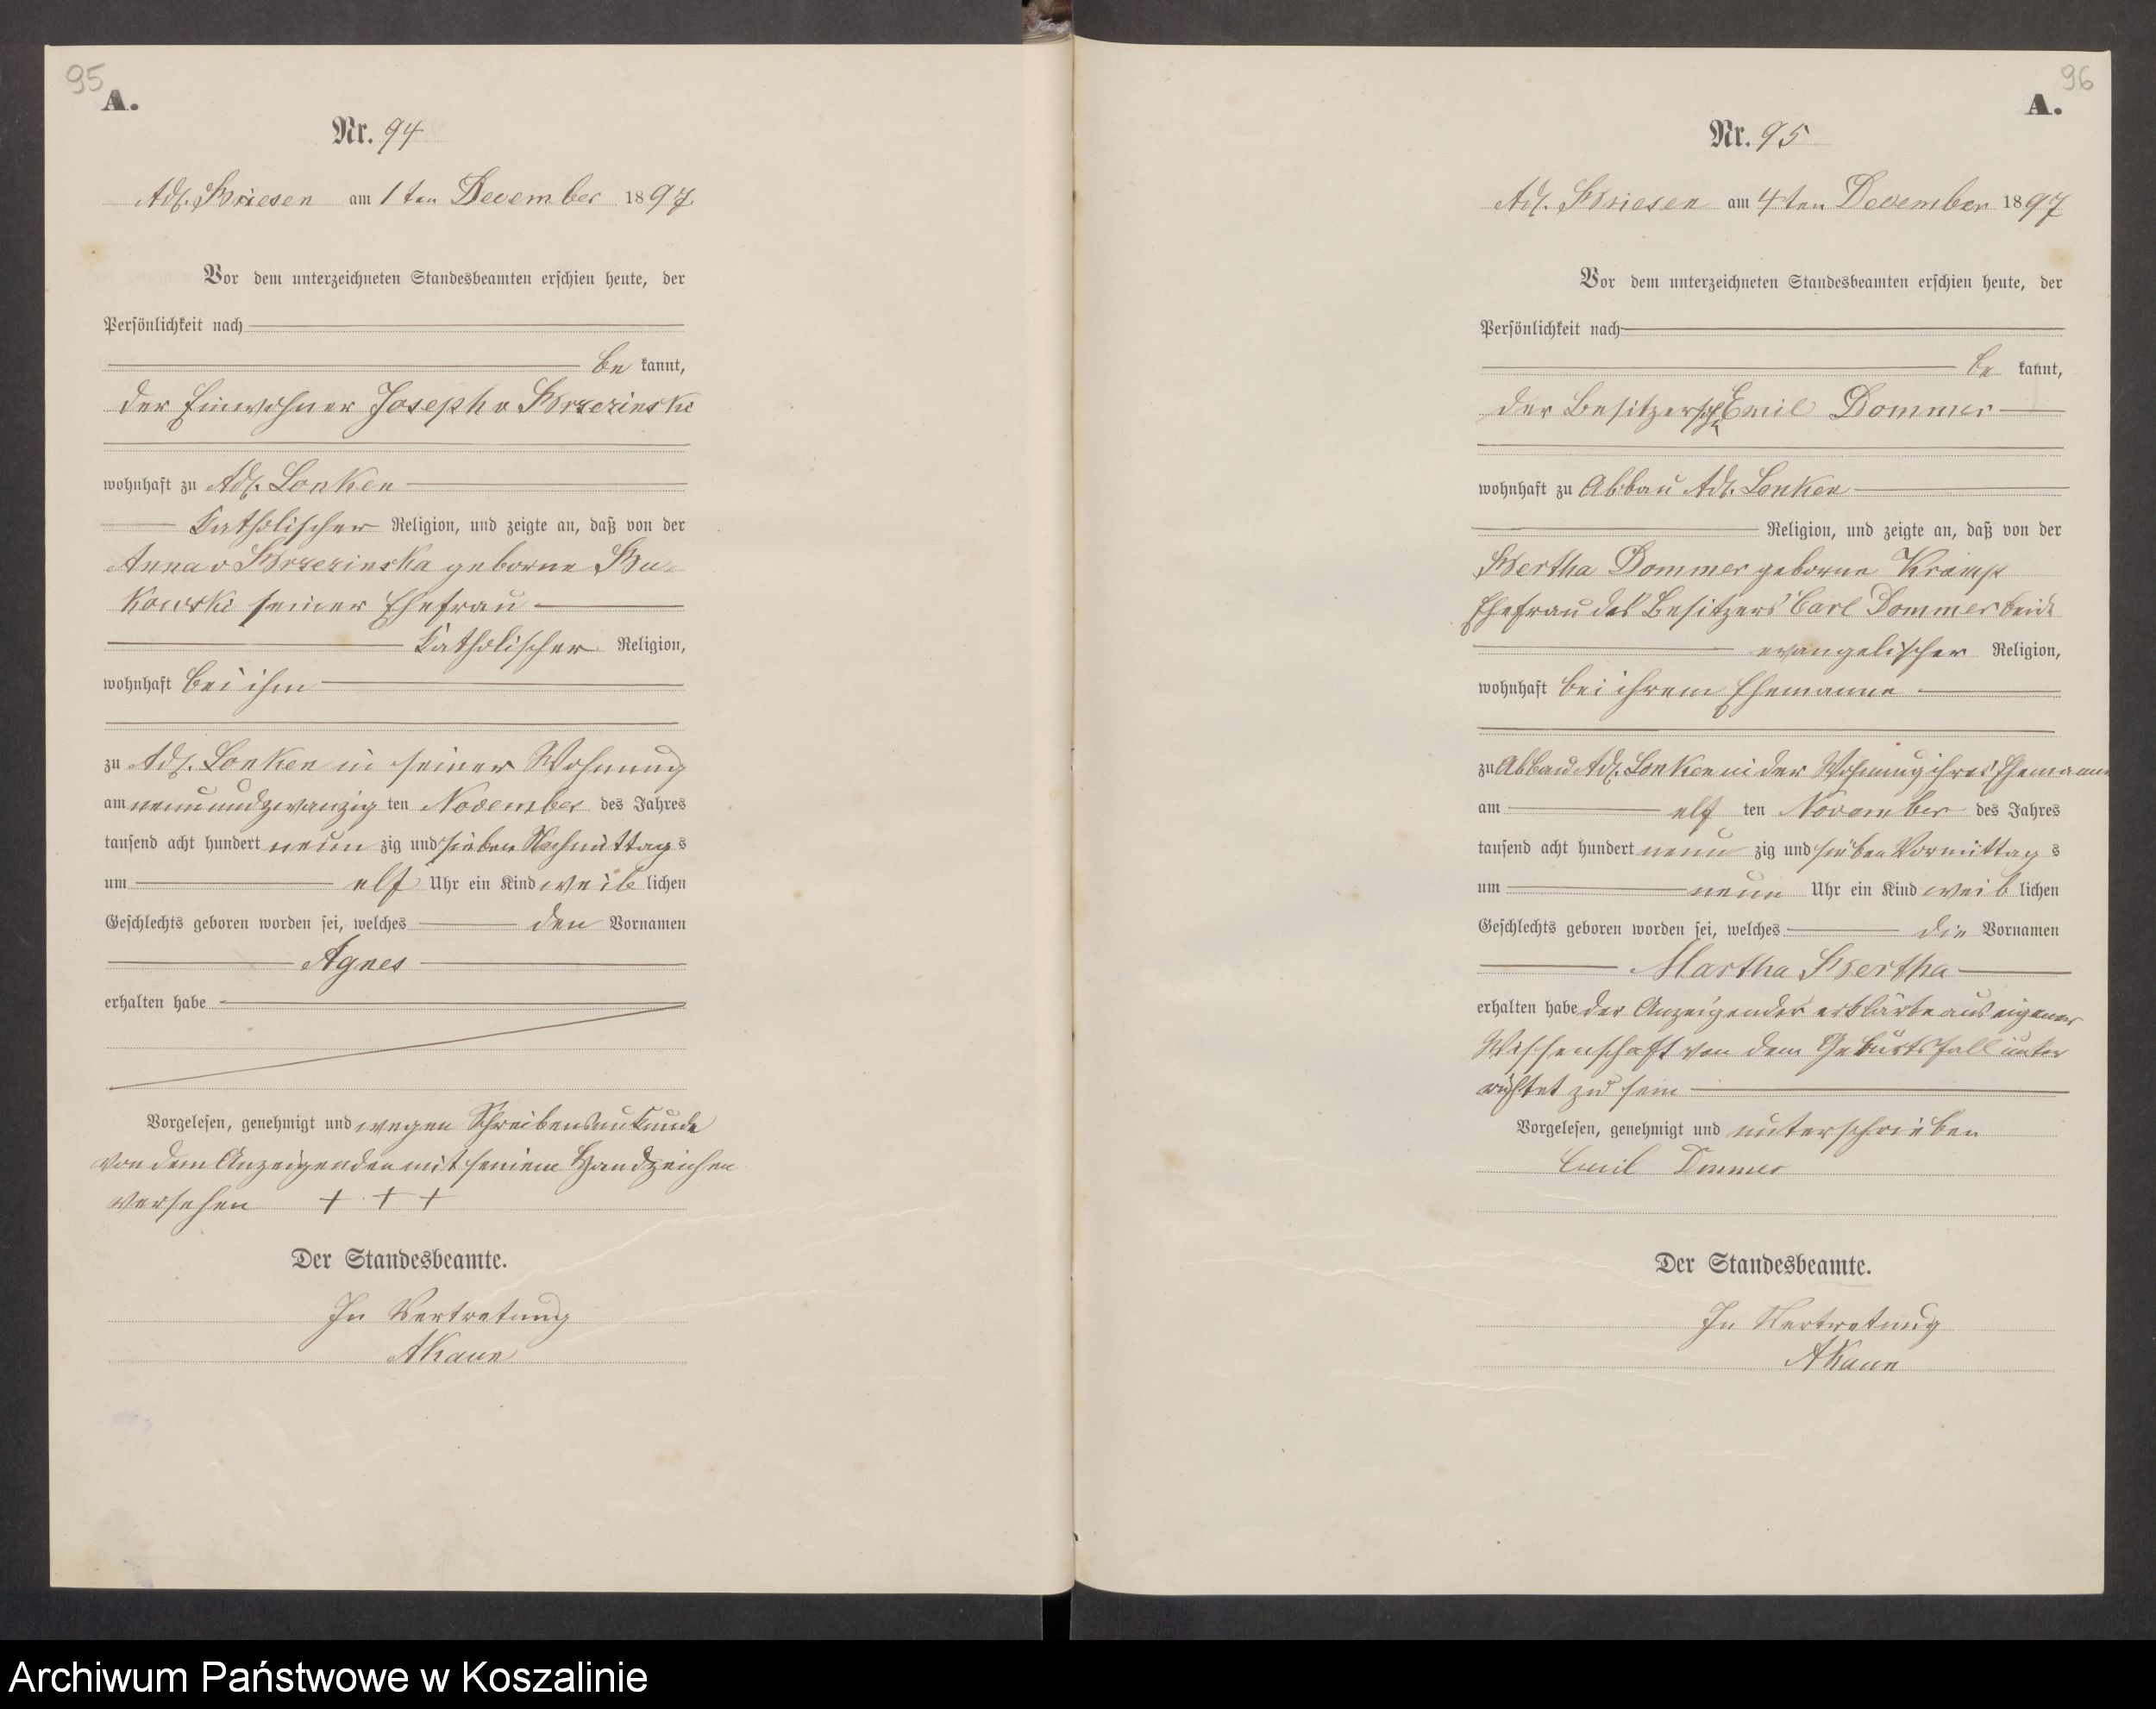 95
A.
Nr. 94
Adl. Briesen am 1ten December 1897
Vor dem unterzeichneten Standesbeamten erschien heute, der
Persönlichkeit nach
be kannt,
der Einwohner Joseph v Brzezinski
wohnhaft zu Adl. Lonken
katholischer Religion, und zeigte an, daß von der
Anna v Brzezinska geborne Bu-
kowski seiner Ehefrau
katholischer Religion,
wohnhaft bei ihm
zu Adl. Lonken in seiner Wohnung
am neunundzwanzig ten November des Jahres
tausend acht hundert neun zig und sieben Nachmittag s
um elf Uhr ein Kind weib lichen
Geschlechts geboren worden sei, welches den Vornamen
Agnes
erhalten habe
Vorgelesen, genehmigt und wegen Schreibensunkunde
von dem Anzeigenden mit seinem Handzeichen
versehen + + +
Der Standesbeamte.
In Vertretung
96
A.
Nr. 95
Adl. Briesen am 4ten December 1897
Vor dem unterzeichneten Standesbeamten erschien heute, der
Persönlichkeit nach
be kannt,
der Besitzer Emil Dommer
wohnhaft zu Abbau Adl. Lonken
Religion, und zeigte an, daß von der
Bertha Dommer geborne Kramp
Ehefrau des Besitzers Carl Dommer beide
evangelischer Religion,
wohnhaft bei ihrem Ehemanne
zu Abbau Adl. Lonken in der Wohnung ihres Ehemann
am elf ten November des Jahres
tausend acht hundert neun zig und sieben Vormittag s
um neun Uhr ein Kind weib lichen
Geschlechts geboren worden sei, welches die Vornamen
Martha Bertha
erhalten habe der Anzeigender erklärte aus eigener
Wissenschaft von dem Geburtsfall unter
richtet zu sein
Vorgelesen, genehmigt und unterschrieben
Emil Dommer
Der Standesbeamte.
In Vertretung
Archiwum Państwowe w Koszalinie